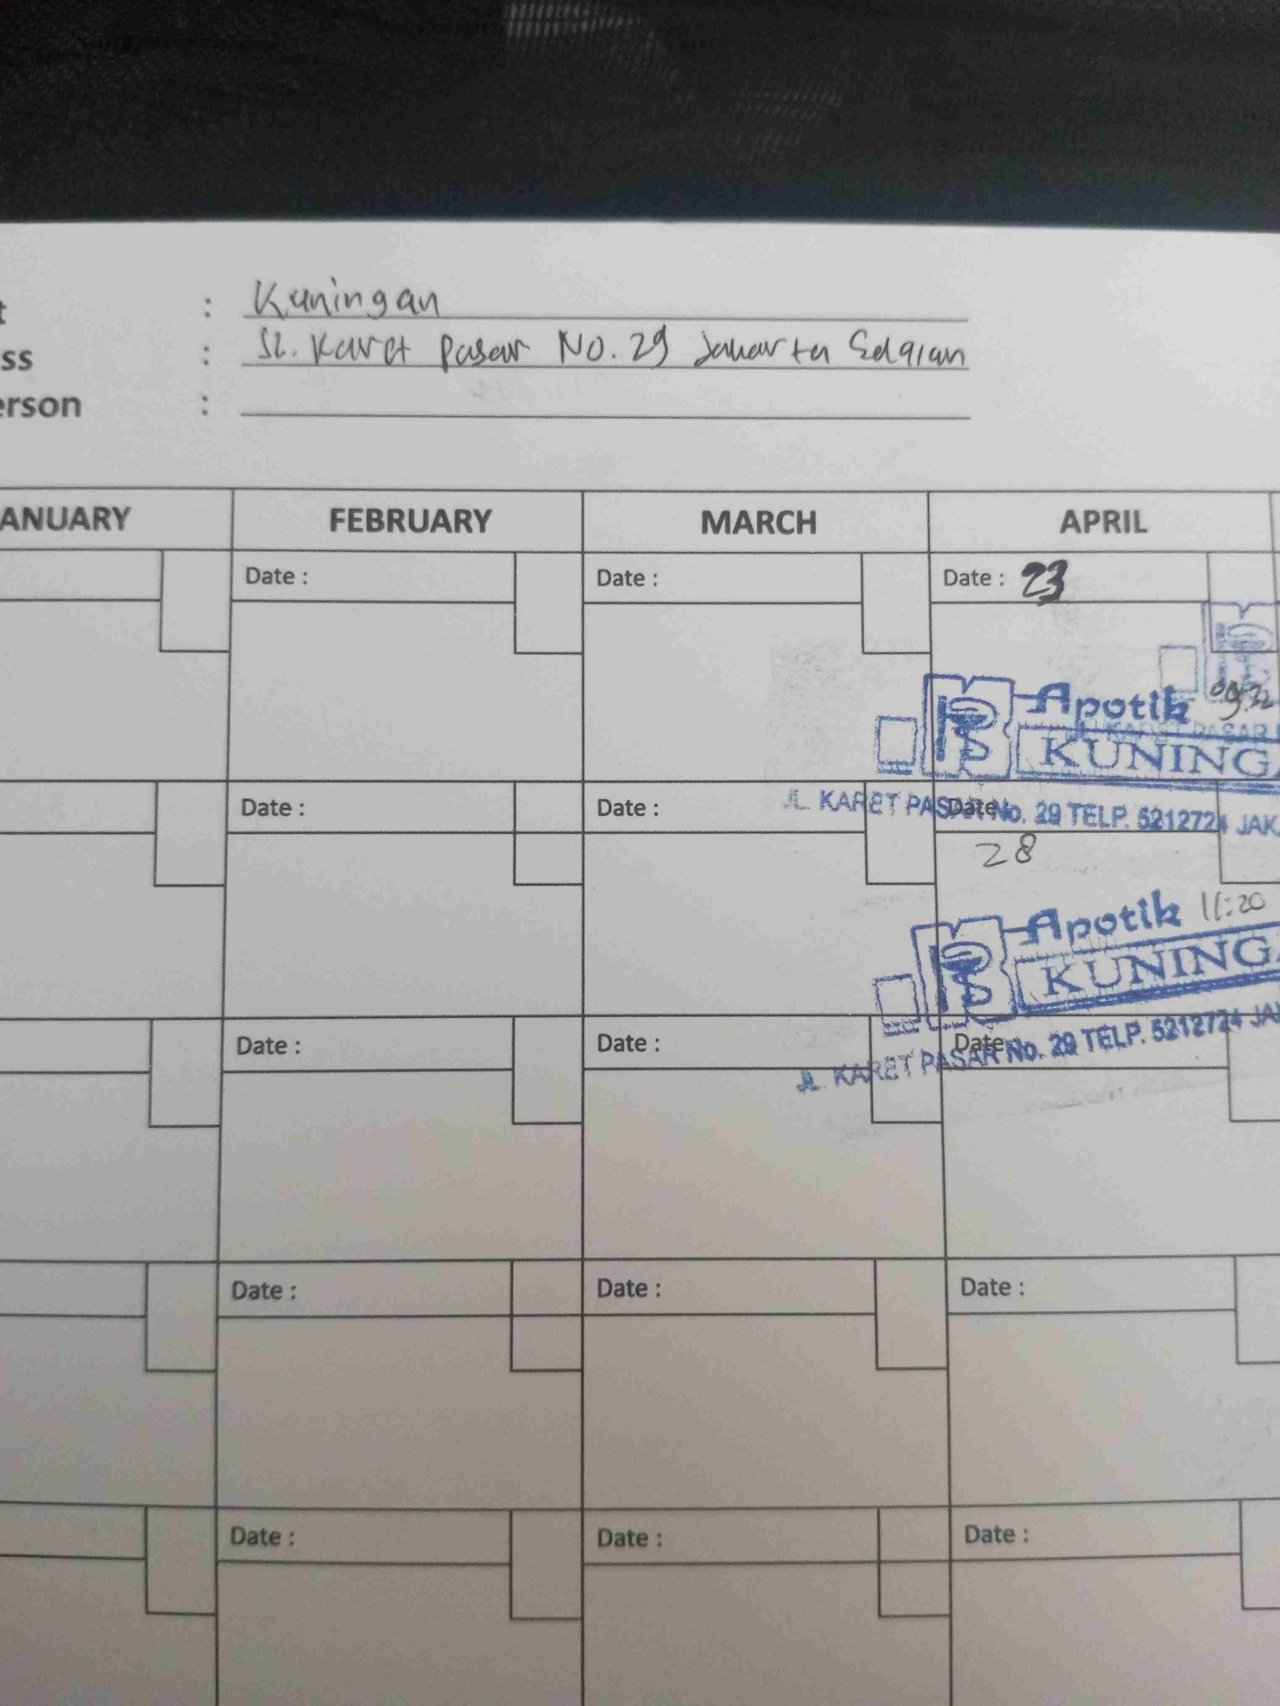 t : Kuningan
ss : Jl. Karet Pasar No. 29 Jakarta Selatan
erson :
ANUARY FEBRUARY MARCH APRIL
Date : Date : Date : 23
Apotik 09.32
KUNING
JL. KARET PASAR No. 29 TELP. 5212724 JAK
Date : Date : Date
28
Apotik 11:20
KUNINGA
JL. KARET PASAR No. 29 TELP. 5212724 JAK
Date : Date : Date
Date : Date : Date :
Date : Date : Date :